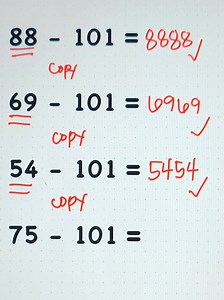 88 - 101 = 8888 ✓
copy
69 - 101 = 6969 ✓
copy
54 - 101 = 5454 ✓
copy
75 - 101 =